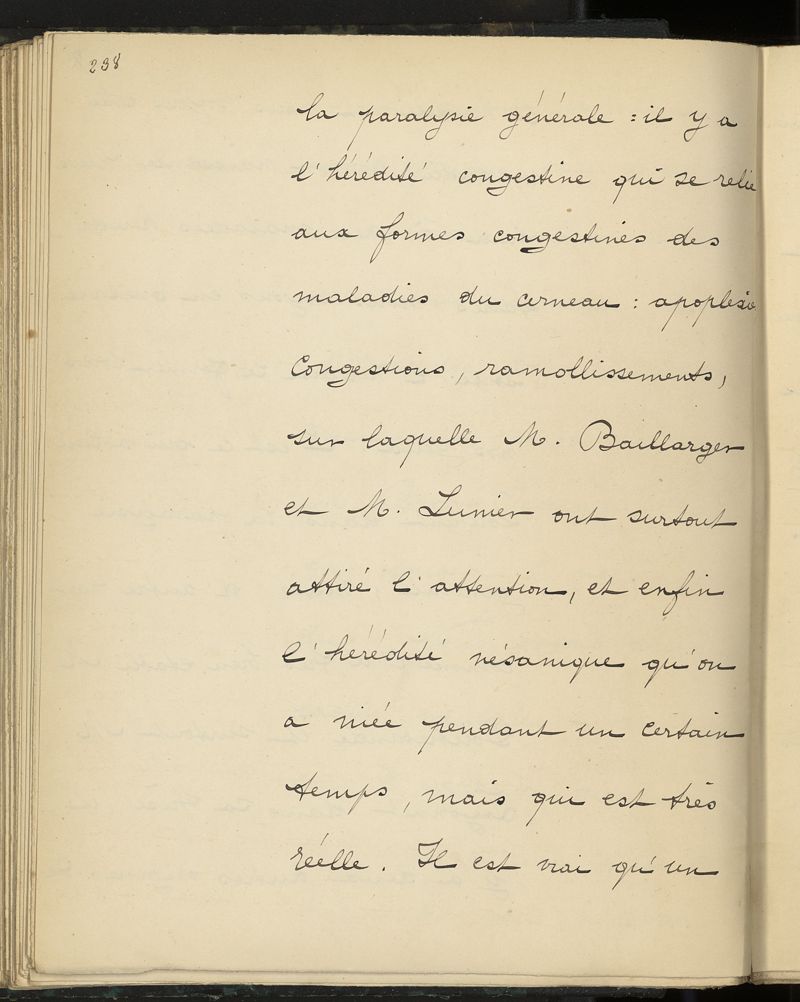 238
la paralysie générale : il y a
l'hérédité congestive qui se relie
aux formes congestives des
maladies du cerveau : apoplexie
congestions, ramollissements,
sur laquelle M. Baillarger
et M. Lunier ont surtout
attiré l'attention, et enfin
l'hérédité vésanique qu'on
a niée pendant un certain
temps, mais qui est très
réelle. Il est vrai qu'un